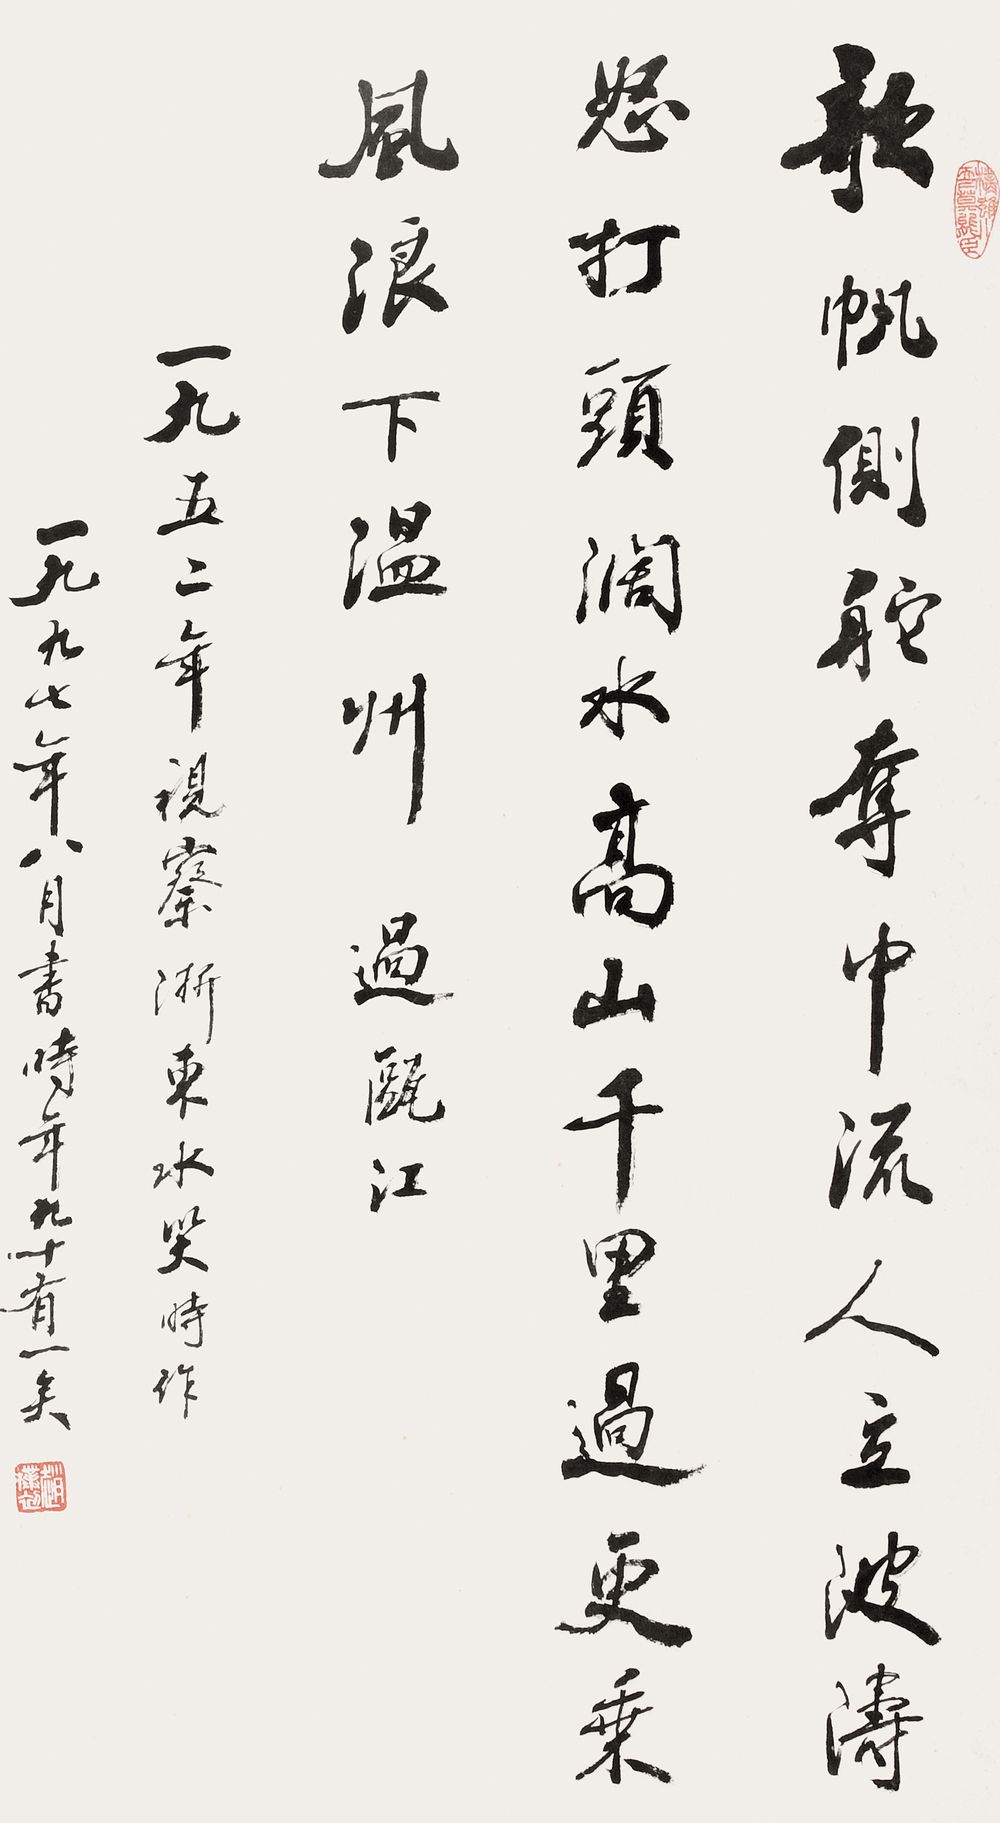 欹帆側舵奪中流人立波濤
怒打頭濶水高山千里過更乘
風浪下温州 過甌江
一九五二年視察浙東水災時作
一九九七年八月書時年九十有一矣
趙樸初